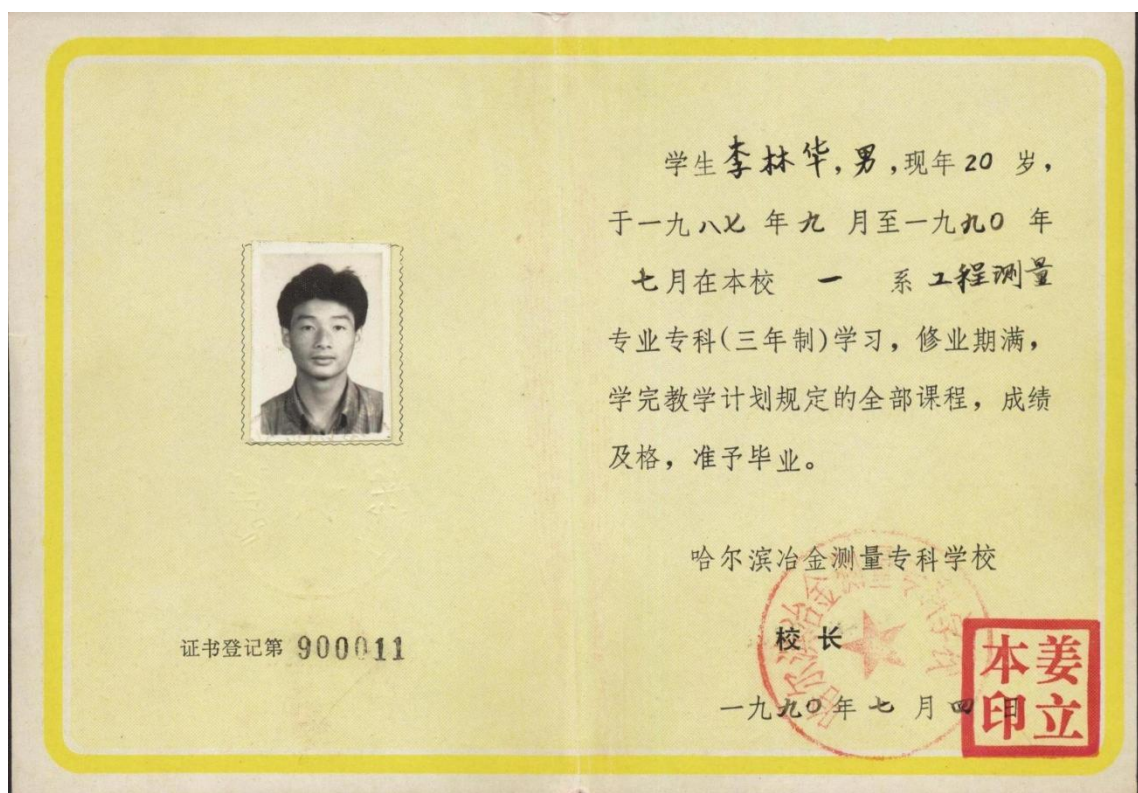 学生李林华,男,现年20 岁,
于一九八七 年九 月至一九九0 年
七月在本校 一 系 工程测量
专业专科(三年制)学习,修业期满,
学完教学计划规定的全部课程,成绩
及格,准予毕业。
哈尔滨冶金测量专科学校
校 长
一九九0年七 月四日
哈尔滨冶金测量专科学校
姜立
本印
证书登记第 900011